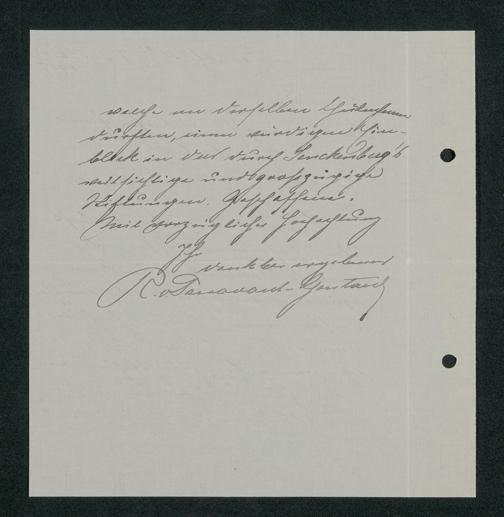 welche an derselben theilnehmen
durften, einen würdigen Ein-
blick in das durch Senckenberg's
weitsichtige und großzügige
Stiftungen Geschaffene.
Mit vorzüglicher Hochachtung
Ihr
dankbar ergebener
R. v.